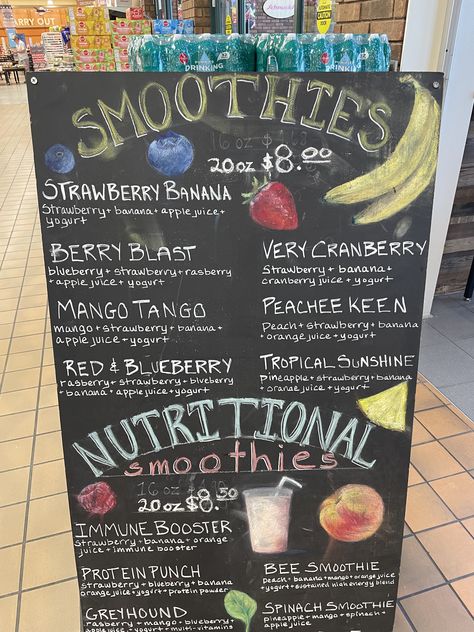 CARRY OUT
DRINKING
SMOOTHIES
16 oz
20 oz $8.00
STRAWBERRY BANANA
Strawberry + banana + apple juice +
yogurt
BERRY BLAST
blueberry + strawberry + rasberry
+ apple juice + yogurt
VERY CRANBERRY
Strawberry + banana +
cranberry juice + yogurt
MANGO TANGO
mango + strawberry + banana +
apple juice + yogurt
PEACHEE KEEN
Peach + strawberry + banana
+ orange juice + yogurt
RED & BLUEBERRY
rasberry + strawberry + blueberry
+ banana + apple juice + yogurt
TROPICAL SUNSHINE
pineapple + strawberry + banana
+ orange juice + yogurt
NUTRITIONAL
smoothies
16 oz
20 oz $8.50
IMMUNE BOOSTER
Strawberry + banana + orange
juice + immune booster
PROTEIN PUNCH
strawberry + blueberry + banana
orange juice + yogurt + protein powder
BEE SMOOTHIE
Peach + banana + mango + orange juice
+ yogurt + sustained high energy blend
GREYHOUND
rasberry + mango + blueberry
+ banana + yogurt + multi-vitamins
SPINACH SMOOTHIE
pineapple + mango + spinach
+ apple juice + yogurt